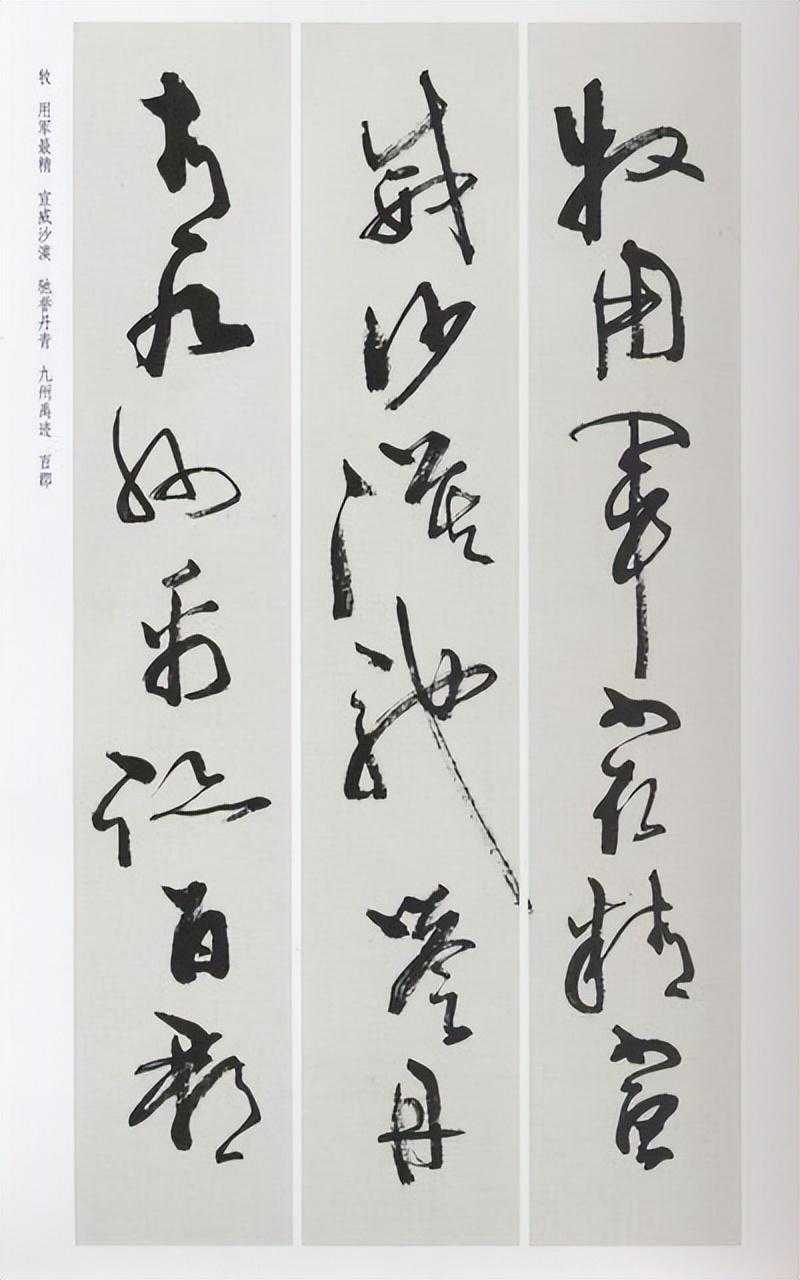 牧用军最精宣
威沙漠驰誉丹
青九州禹迹百郡
牧 用军最精 宣威沙漠 驰誉丹青 九州禹迹 百郡